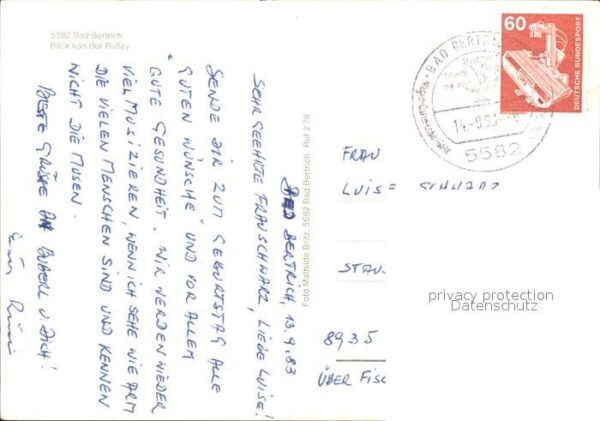 5582 Bad Bertrich
Blick von der Rußley
BAD BERTRICH, 13.9.83
SEHR GEEHRTE FRAU SCHWARZ, LIEBE LUISE!
SENDE DIR ZUM GEBURTSTAG ALLE
GUTEN WÜNSCHE UND VOR ALLEM
GUTE GESUNDHEIT. WIR WERDEN WIEDER
VIEL MUSIZIEREN, WENN ICH SEHE WIE ARM
DIE VIELEN MENSCHEN SIND UND KENNEN
NICHT DIE MUSEN.
BESTE GRÜSSE AN BUBERL U. DICH!
Foto Mathilde Britz, 5582 Bad Bertrich - Ruf 2 78
60
DEUTSCHE BUNDESPOST
BAD BERTRICH
5582
FRAU
LUISE SCHWARZ
8935
ÜBER FISC
privacy protection
Datenschutz